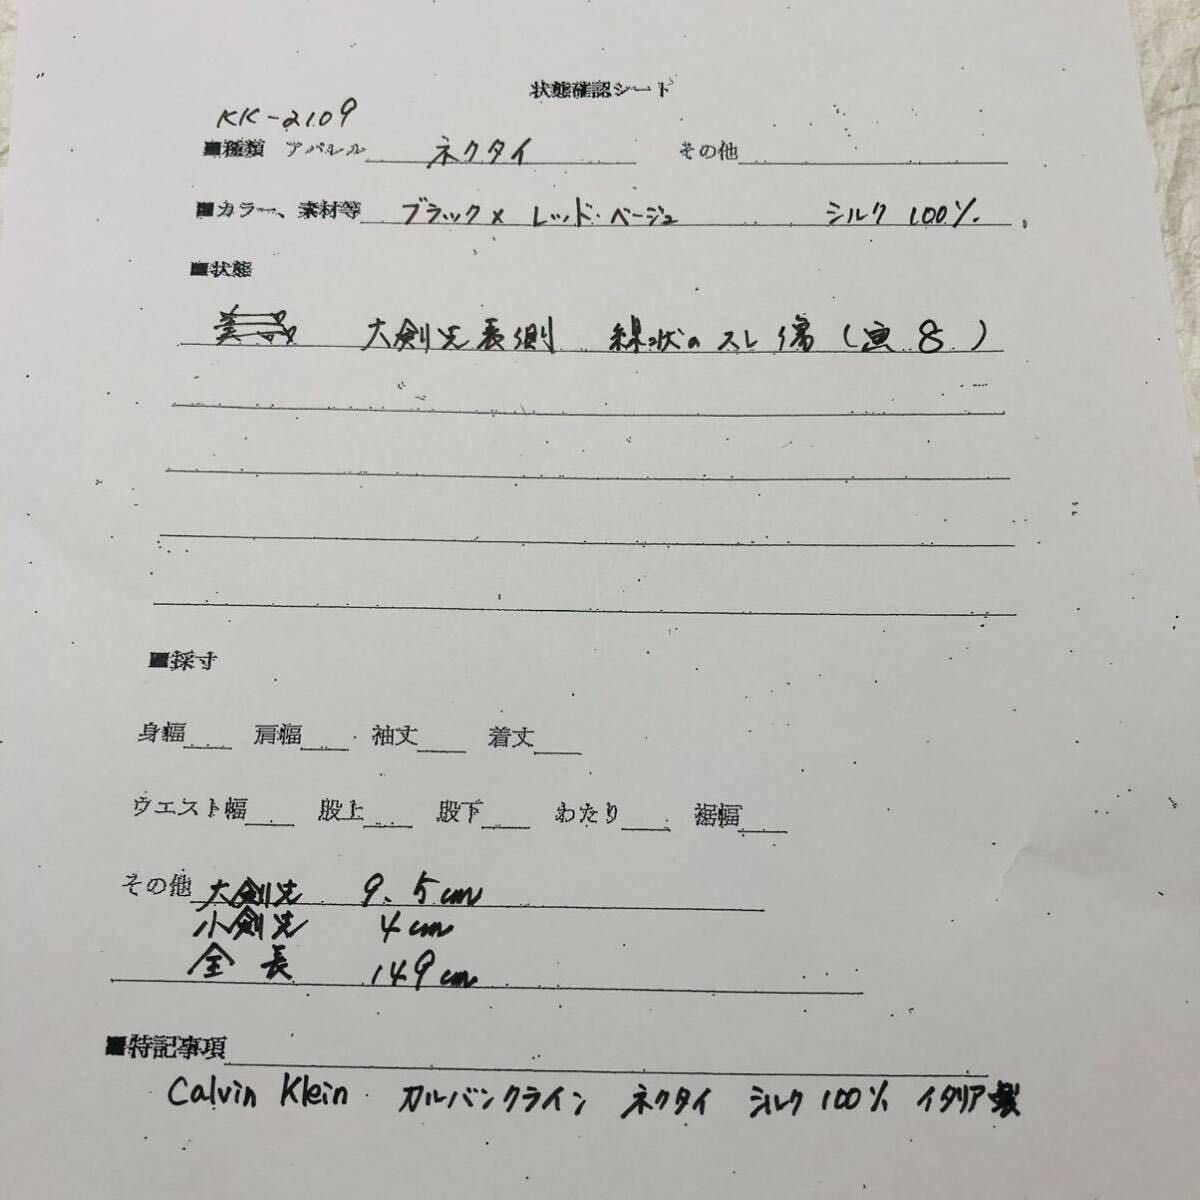 状態確認シート
KK-2109
■種類 アパレル ネクタイ その他
■カラー、素材等 ブラック× レッド・ベージュ シルク 100%
■状態
大剣先表側 線状のスレ傷 (画8)
■採寸
身幅 肩幅 袖丈 着丈
ウエスト幅 股上 股下 わたり 裾幅
その他 大剣先 9.5cm
小剣先 4cm
全長 149cm
■特記事項
Calvin Klein カルバンクライン ネクタイ シルク100% イタリア製